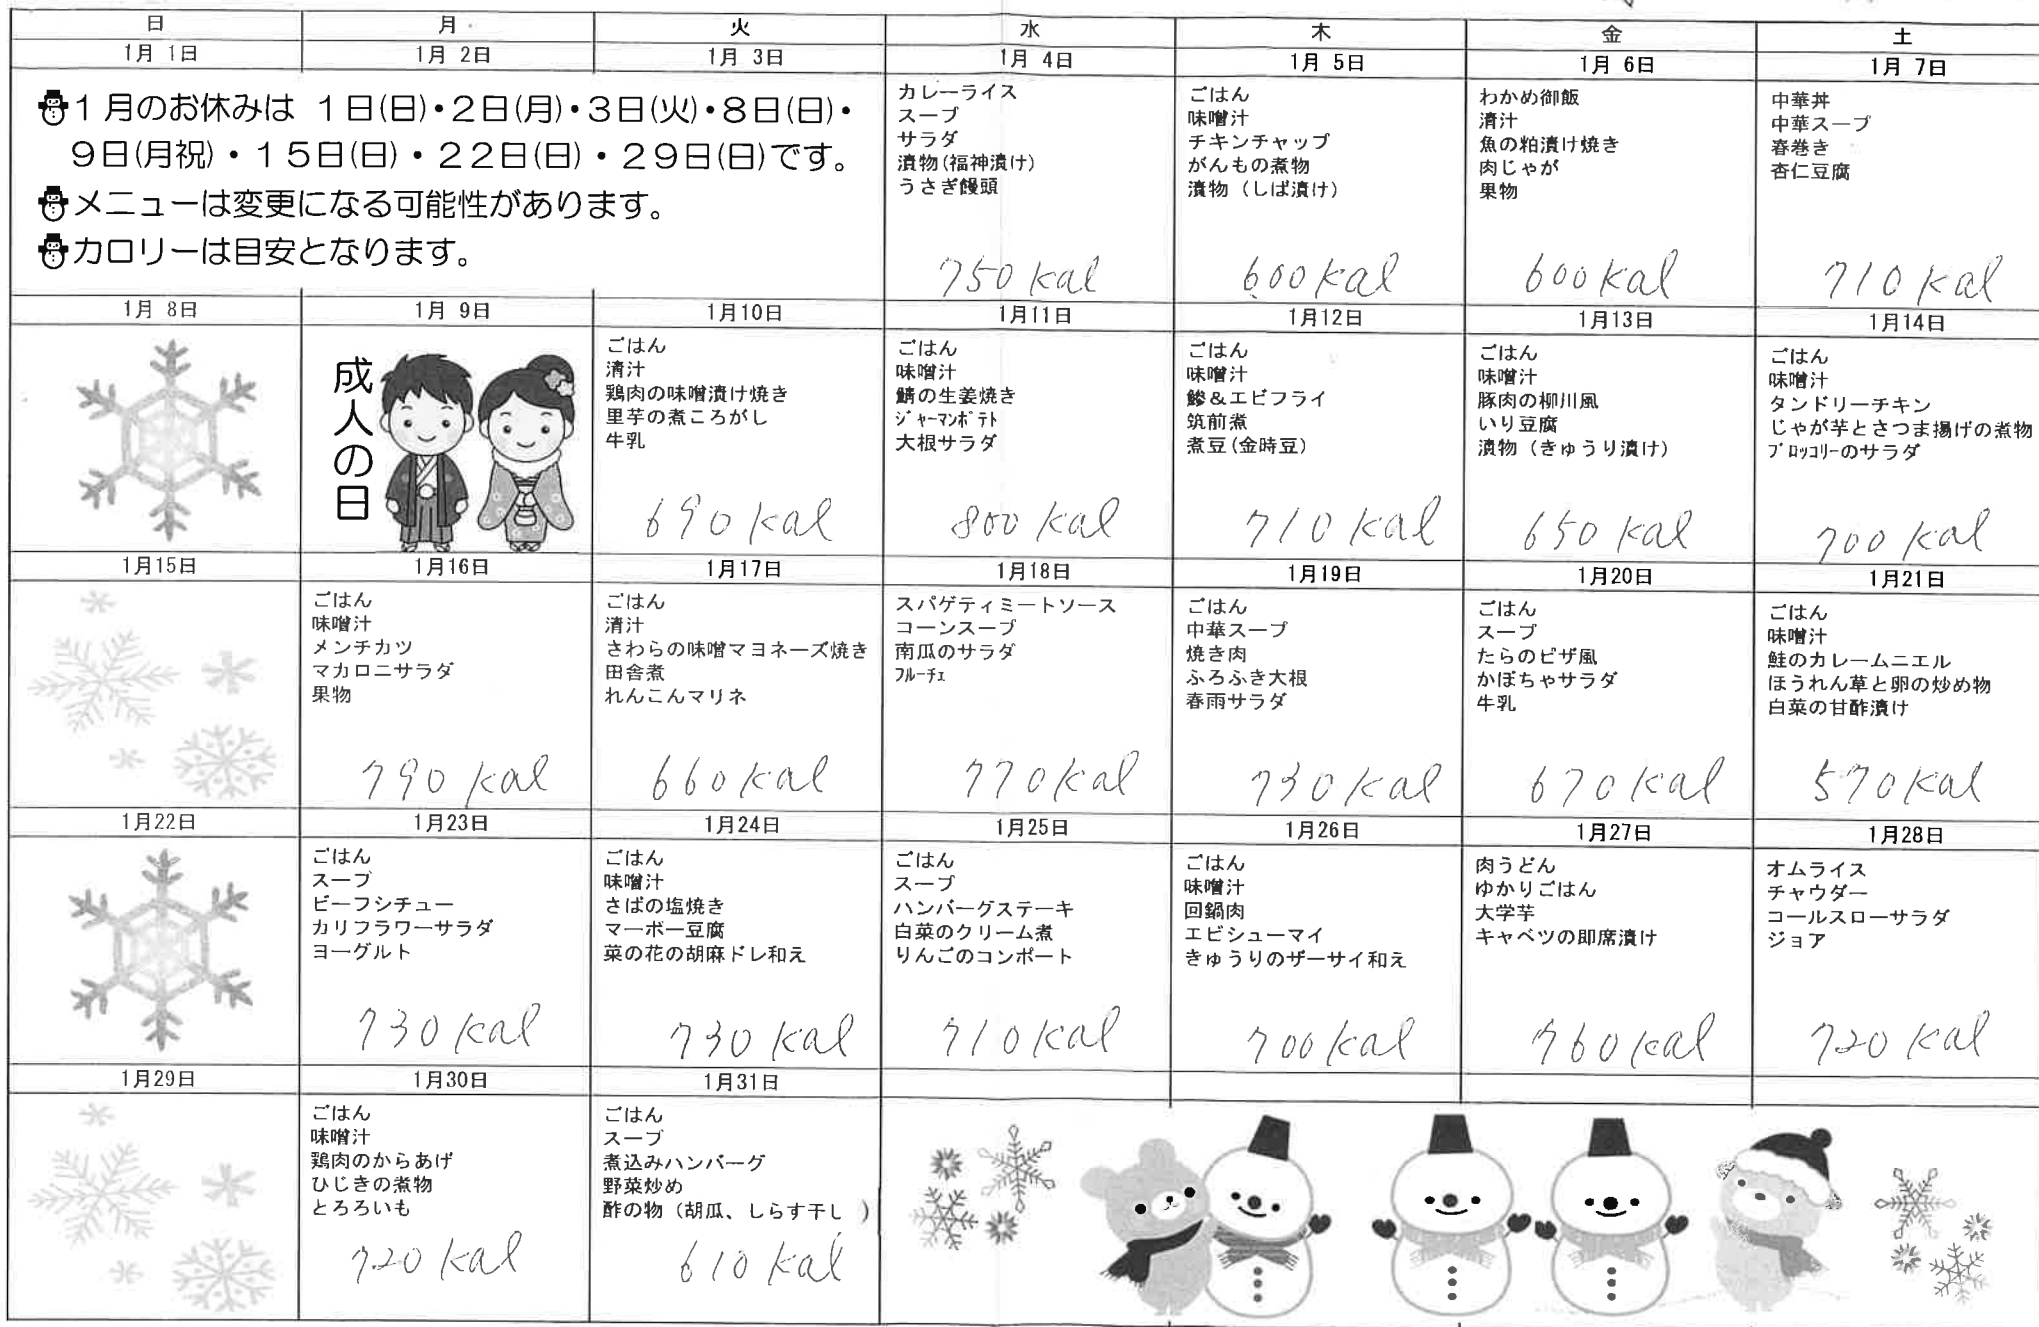 日 月 火 水 木 金 土
1月 1日 1月 2日 1月 3日 1月 4日 1月 5日 1月 6日 1月 7日
1月のお休みは 1日(日)・2日(月)・3日(火)・8日(日)・
9日(月祝)・15日(日)・22日(日)・29日(日)です。
メニューは変更になる可能性があります。
カロリーは目安となります。
カレーライス
スープ
サラダ
漬物(福神漬け)
うさぎ饅頭
750 kal
ごはん
味噌汁
チキンチャップ
がんもの煮物
漬物（しば漬け）
600 kal
わかめ御飯
清汁
魚の粕漬け焼き
肉じゃが
果物
600 kal
中華丼
中華スープ
春巻き
杏仁豆腐
710 kal
1月 8日 1月 9日 1月10日 1月11日 1月12日 1月13日 1月14日
成人の日
ごはん
清汁
鶏肉の味噌漬け焼き
里芋の煮ころがし
牛乳
690 kal
ごはん
味噌汁
鯖の生姜焼き
ｼﾞｬｰﾏﾝﾎﾟﾃﾄ
大根サラダ
800 kal
ごはん
味噌汁
鯵＆エビフライ
筑前煮
煮豆(金時豆)
710 kal
ごはん
味噌汁
豚肉の柳川風
いり豆腐
漬物（きゅうり漬け）
650 kal
ごはん
味噌汁
タンドリーチキン
じゃが芋とさつま揚げの煮物
ﾌﾞﾛｯｺﾘｰのサラダ
700 kal
1月15日 1月16日 1月17日 1月18日 1月19日 1月20日 1月21日
ごはん
味噌汁
メンチカツ
マカロニサラダ
果物
790 kal
ごはん
清汁
さわらの味噌マヨネーズ焼き
田舎煮
れんこんマリネ
660 kal
スパゲティミートソース
コーンスープ
南瓜のサラダ
ﾌﾙｰﾁｪ
770 kal
ごはん
中華スープ
焼き肉
ふろふき大根
春雨サラダ
730 kal
ごはん
スープ
たらのピザ風
かぼちゃサラダ
牛乳
670 kal
ごはん
味噌汁
鮭のカレームニエル
ほうれん草と卵の炒め物
白菜の甘酢漬け
570 kal
1月22日 1月23日 1月24日 1月25日 1月26日 1月27日 1月28日
ごはん
スープ
ビーフシチュー
カリフラワーサラダ
ヨーグルト
730 kal
ごはん
味噌汁
さばの塩焼き
マーボー豆腐
菜の花の胡麻ドレ和え
730 kal
ごはん
スープ
ハンバーグステーキ
白菜のクリーム煮
りんごのコンポート
710 kal
ごはん
味噌汁
回鍋肉
エビシューマイ
きゅうりのザーサイ和え
700 kal
肉うどん
ゆかりごはん
大学芋
キャベツの即席漬け
760 kal
オムライス
チャウダー
コールスローサラダ
ジョア
720 kal
1月29日 1月30日 1月31日
ごはん
味噌汁
鶏肉のからあげ
ひじきの煮物
とろろいも
720 kal
ごはん
スープ
煮込みハンバーグ
野菜炒め
酢の物（胡瓜、しらす干し ）
610 kal